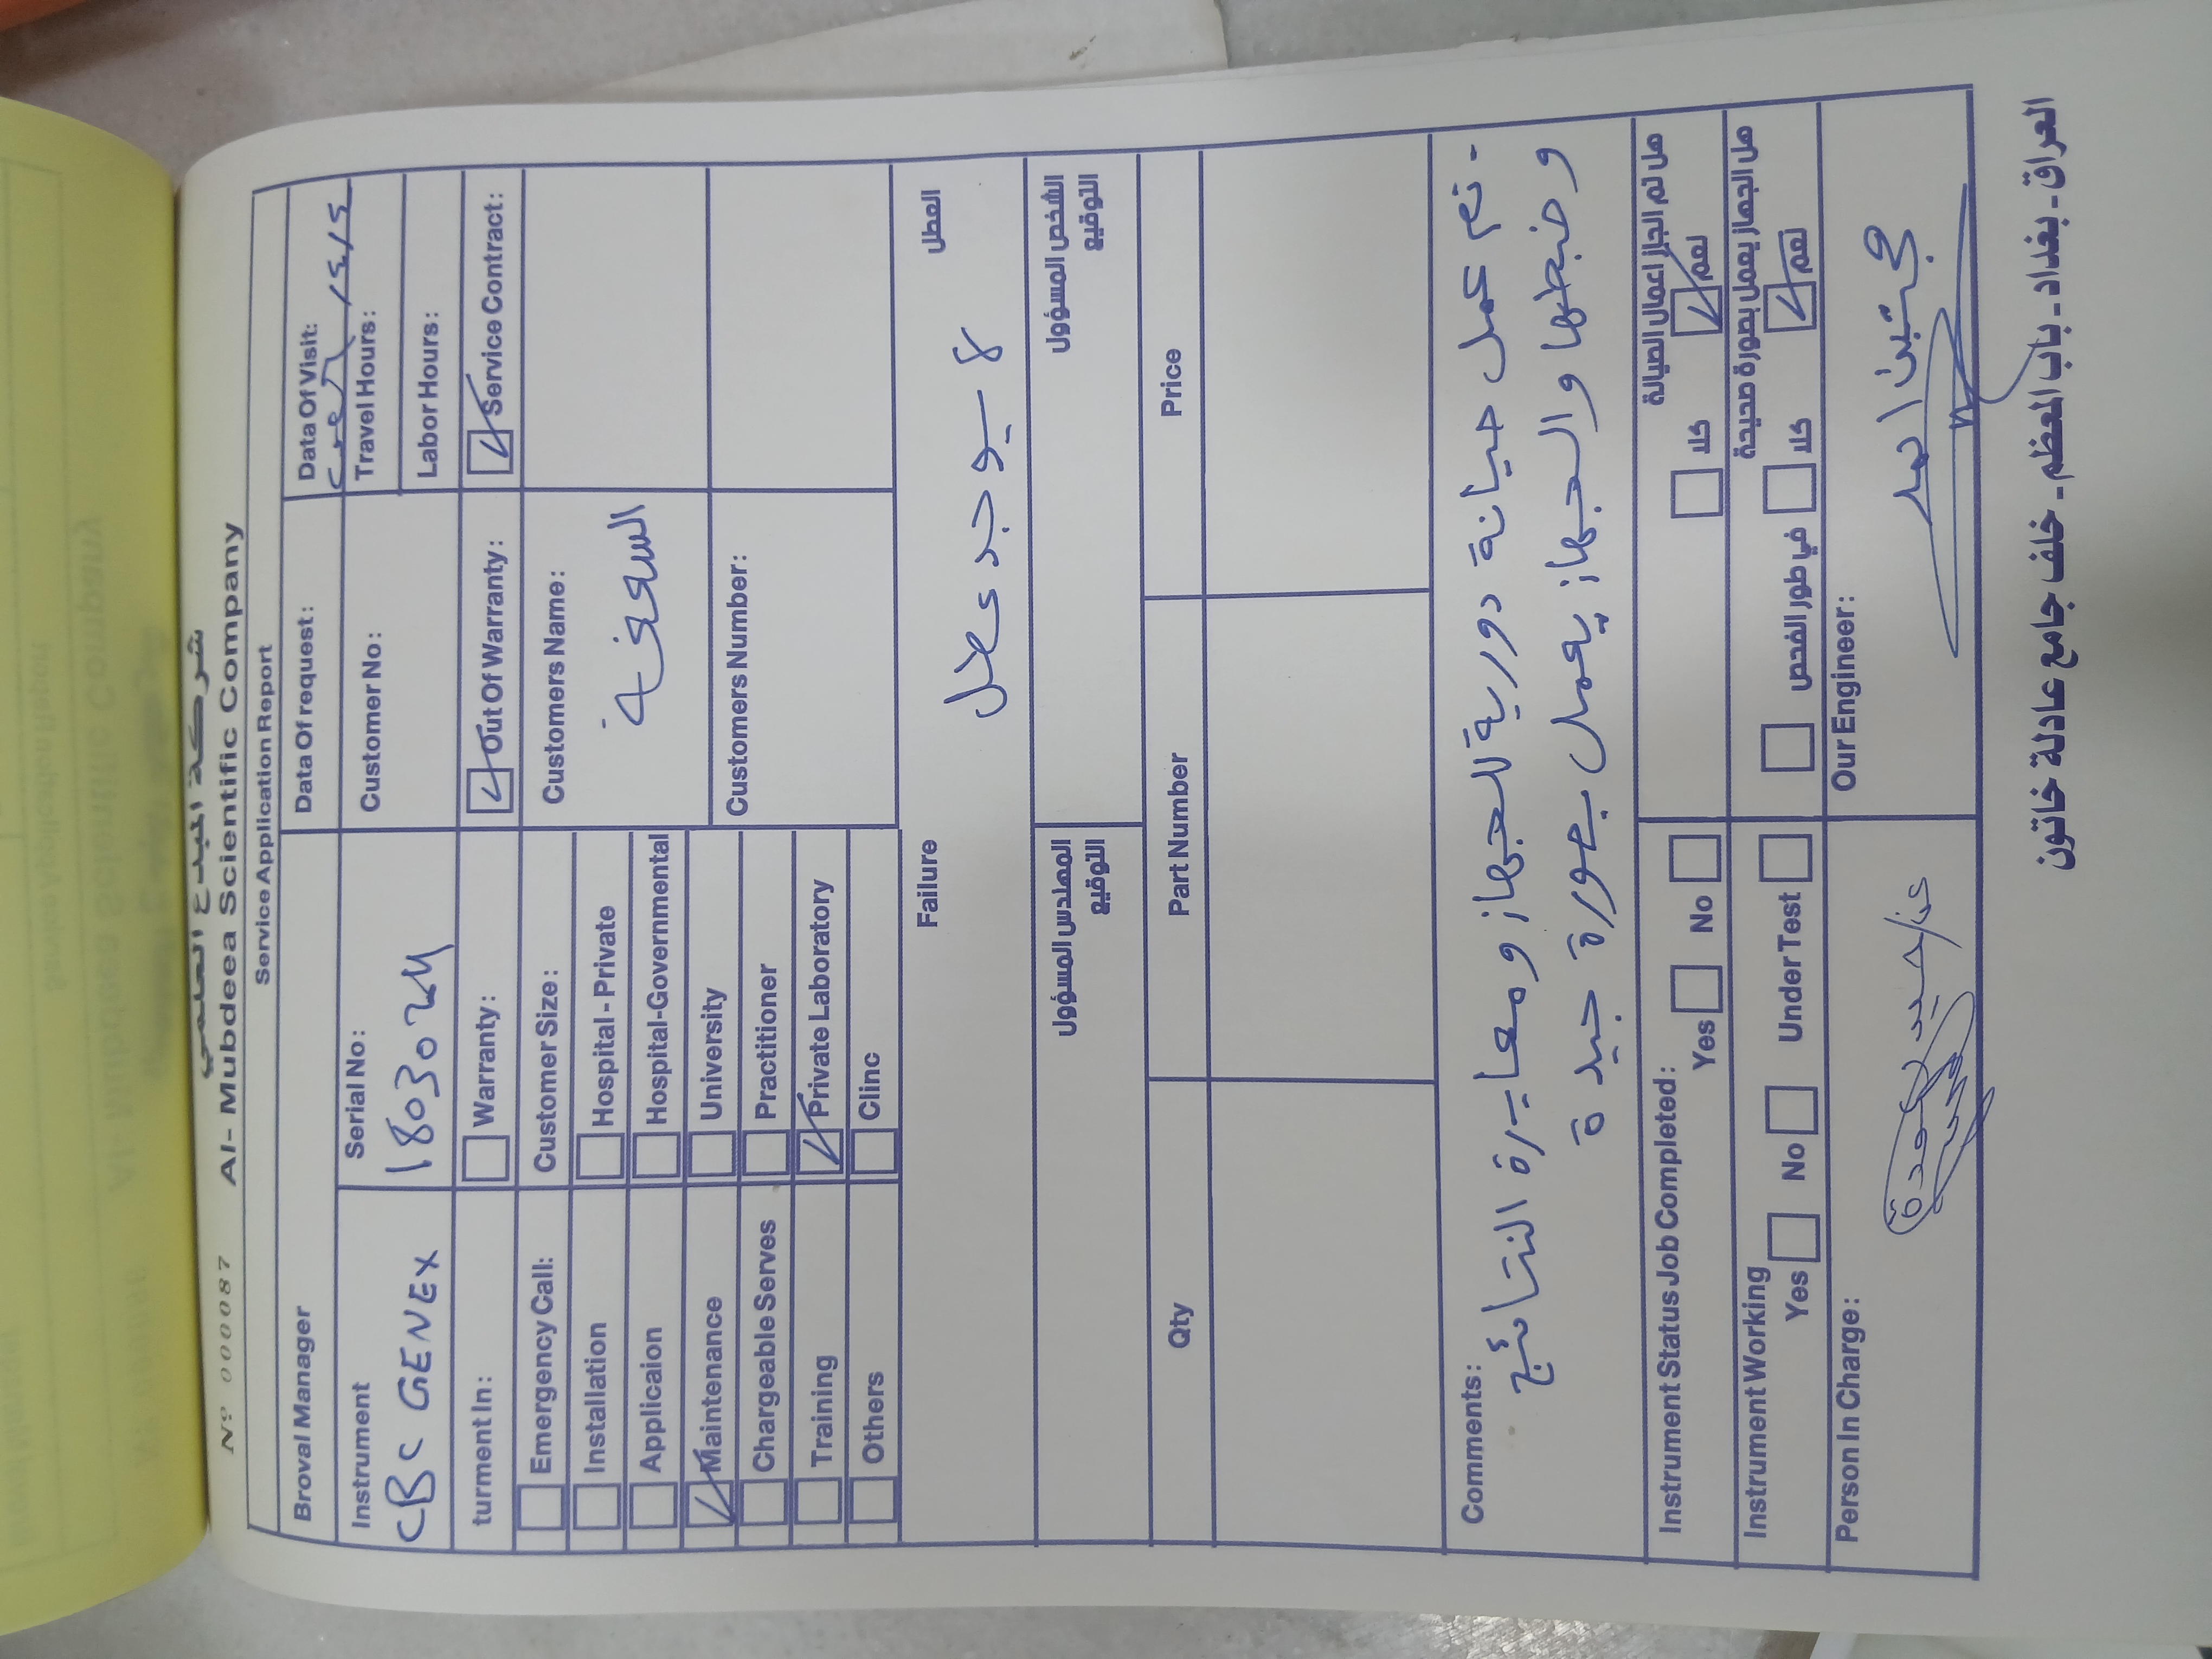 شركة المبدع العلمي
Nº 000087 Al- Mubdeea Scientific Company
Service Application Report
Broval Manager Data Of request: Data Of Visit:
Instrument Serial No: Customer No: Travel Hours:
CBC GENEX 180302M
Labor Hours:
turment In: Warranty: Out Of Warranty: Service Contract:
Emergency Call: Customer Size: Customers Name:
Installation Hospital - Private
Applicaion Hospital-Governmental
Maintenance University Customers Number:
Chargeable Serves Practitioner
Training Private Laboratory
Others Clinc
Failure العطل
لا يوجد عطل
المهندس المسؤول الشخص المسؤول
التوقيع التوقيع
Qty Part Number Price
Comments:
- تم عمل صيانة دورية للجهاز ومعايرة النتائج
و ضبطها والجهاز يعمل بصورة جيدة
Instrument Status Job Completed: هل تم انجاز اعمال الصيانة
Yes No كلا نعم
Instrument Working هل الجهاز يعمل بصورة صحيحة
Yes No Under Test في طور الفحص كلا نعم
Person In Charge: Our Engineer:
العراق - بغداد - باب المعظم - نفق جامع عادلة خاتون